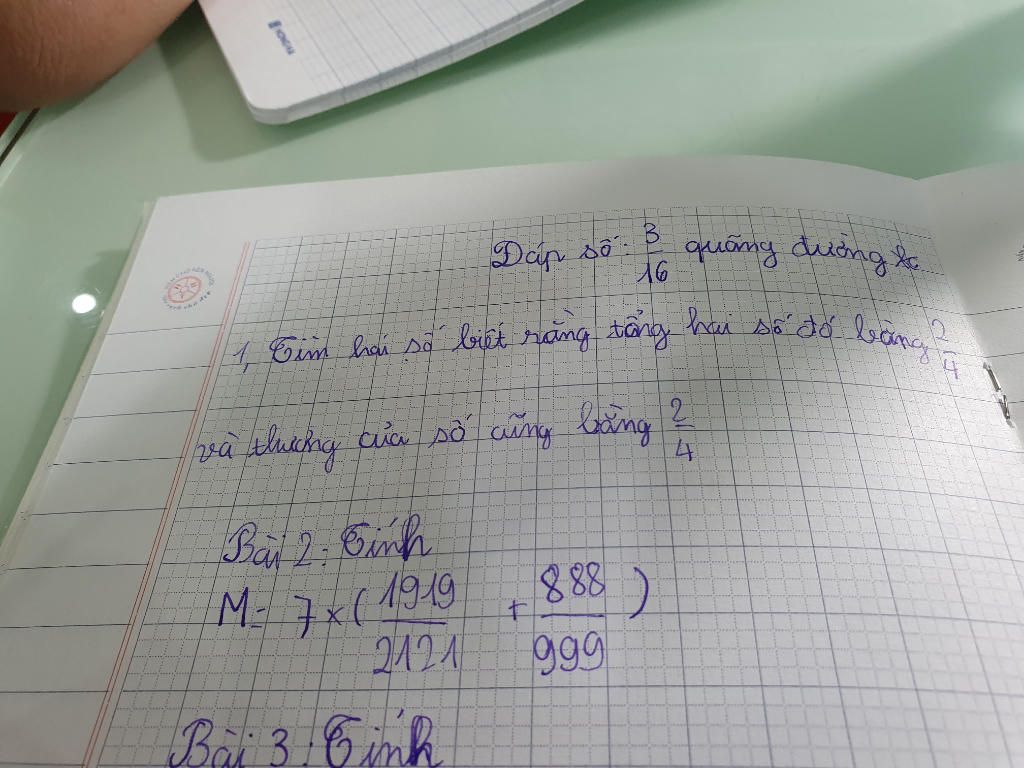 Dáp số: 3/16 quãng đường
1, Tìm hai số biết rằng tổng hai số đó bằng 2/4
và thương của số cũng bằng 2/4
Bài 2: Tính
M = 7 × ( 1919/2121 + 888/999 )
Bài 3: Tính